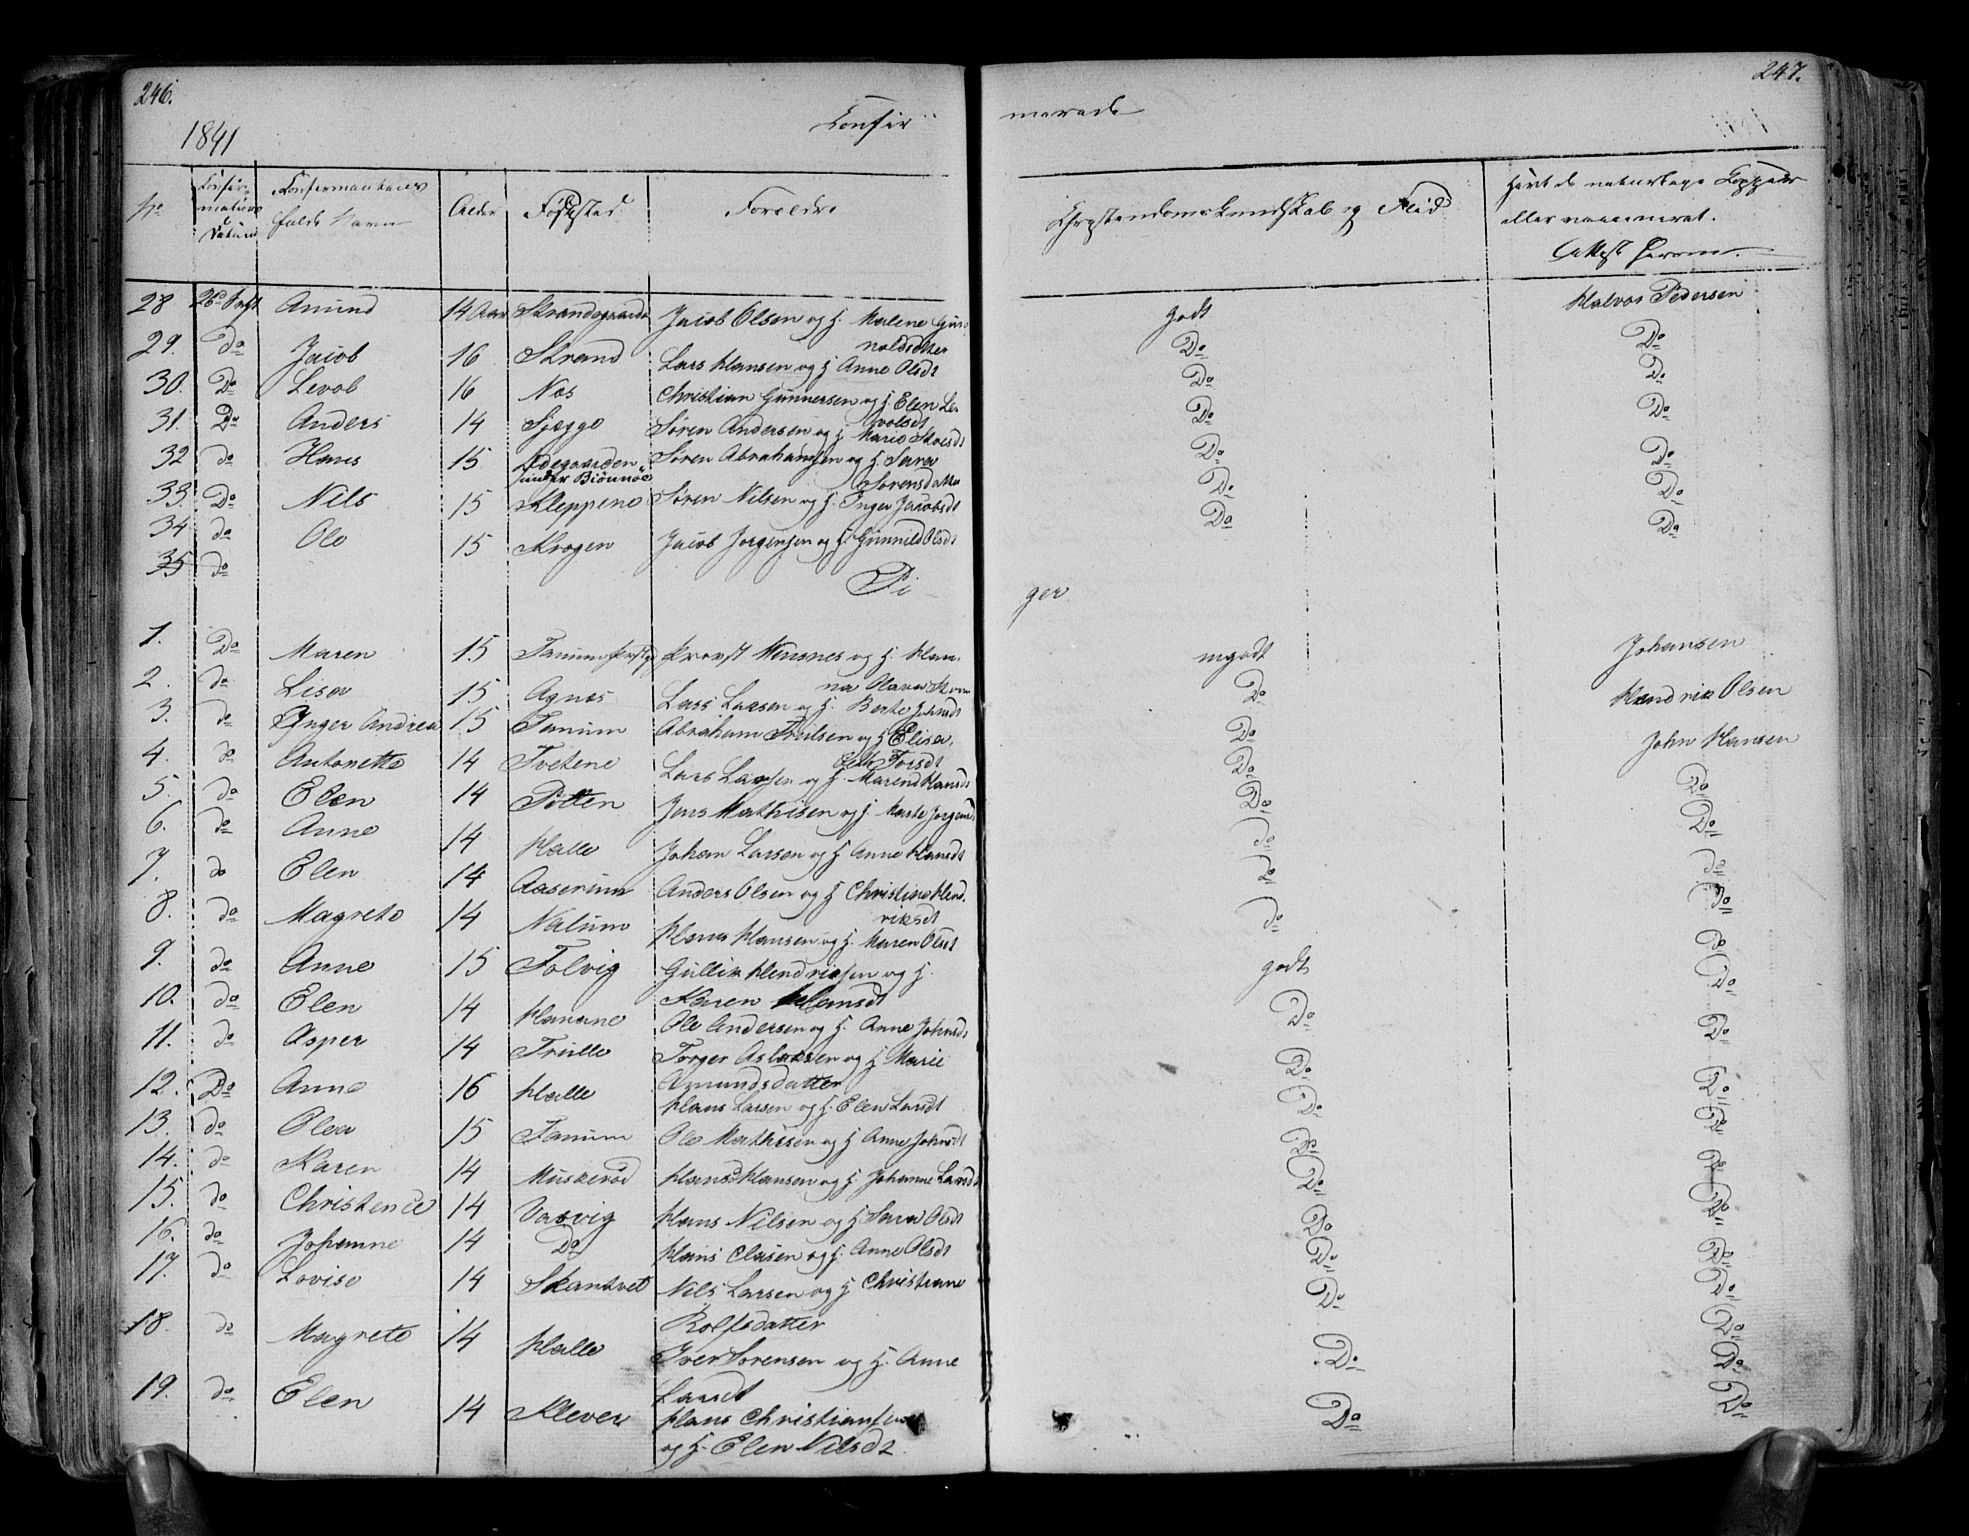 246.
247.
1841
Confir-
merede
No
Confir-
mations
Datum
Confirmanternes
fulde Navn
Alder
Fødested
Forældre
Chrystendoms kundskab og Flid
havt de naturlige Kopper
eller vaccineret.
Attest herom.
28 14 Aar Amund Jacob Olsen og H. Malene Gun-
noldsdtter godt Halvor Pedersen
29. do Jacob 16 Strand Lars Hansen og H Anne Olsdt Do Do
30. Do Levol 16 Næs Christian Gunnersen og H. Elen Le-
volsdt Do Do
31. Do Anders 14 Sjegge Søren Andersen og H Marie Do Do
32 do Hans 15 Ødegaarden
under Biønnæs Søren Abrahamsen og H. Sara
Sørensdatter Do Do
33. Do Nils 15 Kleppene Søren Nilsen og H. Inger Jacobsdt Do Do
34 do Ole 15 Krogen Jacob Jørgensen og H. Gunnild Olsdt Do Do
35 do
Pi
ger
1. Do Maren 15 Tanum Provst og H. Han-
na Olava mgodt Johansen
2. do Lisa 15 Agnes Lars Larsen og H. Berte Johnsdt Do Hendrik Olsen
3. do Inger Andrea 15 Tanum Abraham Trulsen og H Elisa-
beth Torsdt Do John Hansen
4. do Antonette 14 Tvetene Lars Larsen og H. Maren Hansdt Do Do
5. do Elen 14 Pøtten Jens Mathisen og H. Marte Jørgensd Do Do
6. do Anne 14 Halle Johan Larsen og H Anne Hansdt do do
7. do Elen 14 Aaserum Anders Olsen og H Christine Hend-
riksdt do Do
8. do Magrete 14 Nalum Hans Hansen og H. Maren Olsdt do do
9. do Anne 15 Tolvig Gullik Hendriksen og H.
Karen Hansdt godt Do
10. do Elen 14 Havane Ole Andersen og H. Anne Johnsdt Do Do
11. do Asper 14 Trulle Torger Aslaksen og H Marie
Amundsdatter Do Do
12. Do Anne 16 Halle Hans Larsen og H. Elen Larsdt Do Do
13. do Olea 15 Tanum Ole Mathisen og H Anne Johnsdt Do Do
14. do Karen 14 Muskerød Hans Hansen og H Johanne Larsdt Do Do
15. do Christence 14 Vasvig Hans Nilsen og H Sara Olsdt Do Do
16. do Johanne 14 Do Hans Clasen og H. Anne Olsdt Do Do
17. do Lovise 14 Skantvet Nils Larsen og H Christiane
Rolfsdatter Do Do
18. do Magrete 14 Halle Iver Sørensen og H. Anne
Larsdt Do Do
19. do Elen 14 Klever Hans Christiansen
og H. Elen Nilsdt Do Do